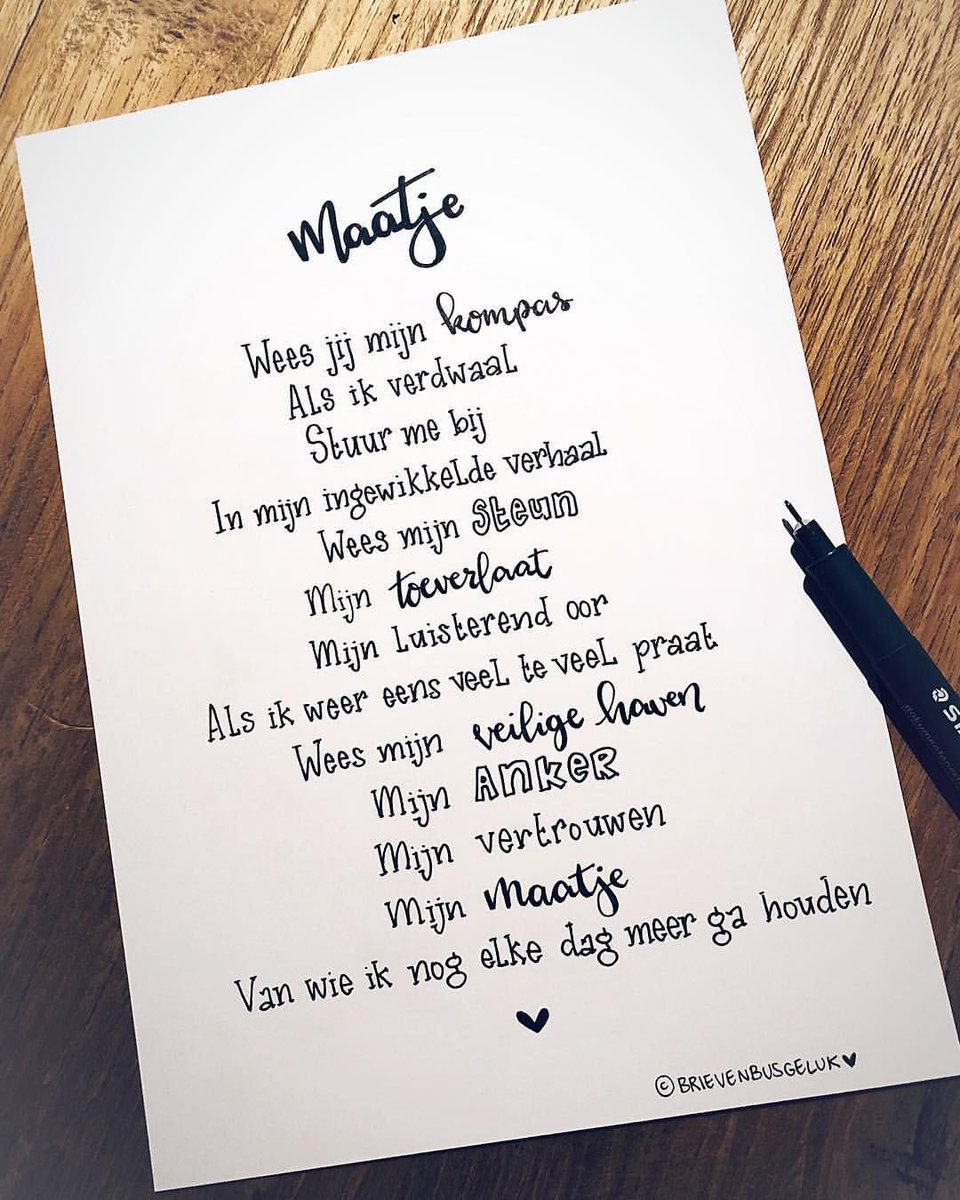 Maatje
Wees jij mijn kompas
Als ik verdwaal
Stuur me bij
In mijn ingewikkelde verhaal
Wees mijn steun
Mijn toeverlaat
Mijn luisterend oor
Als ik weer eens veel te veel praat
Wees mijn veilige haven
Mijn ANKER
Mijn vertrouwen
Mijn Maatje
Van wie ik nog elke dag meer ga houden
© BRIEVENBUSGELUK